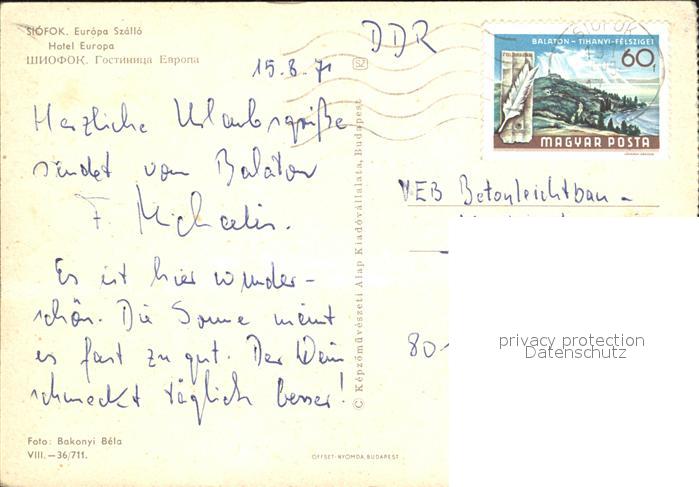 SIÓFOK. Európa Szálló
Hotel Europa
ШИОФОК. Гостиница Европа
DDR
15.8.71
Herzliche Urlaubsgrüße
sendet vom Balaton
F. Michaelis.
Es ist hier wunder-
schön. Die Sonne meint
es fast zu gut. Der Wein
schmeckt täglich besser!
Foto: Bakonyi Béla
VIII.—36/711.
SZ
© Képzőművészeti Alap Kiadóvállalata, Budapest
OFFSET-NYOMDA, BUDAPEST
SIÓFOK
BALATON - TIHANYI-FÉLSZIGET
60f
MAGYAR POSTA
VEB Betonleichtbau-
80
privacy protection
Datenschutz